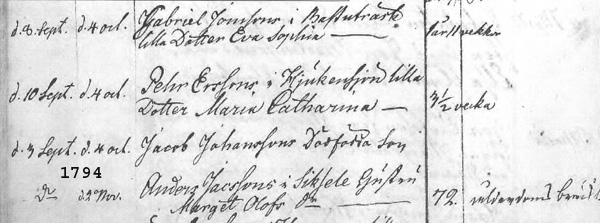 d. 8 Sept. d. 4 oct. Gabriel Jonssons i Bastuträsk
lilla Dotter Eva Sophia —
d. 10 Sept. d. 4 oct. Pehr Erssons i lilla
Dotter Maria Catharina — 3½ vecka
d. 3 Sept. d. 4 oct. Jacob Johanssons Dödfödda Son
1794
d. 2 Nov. Anders Jacssons i Siksele Hustru
Marget Olofs Dr — 72.